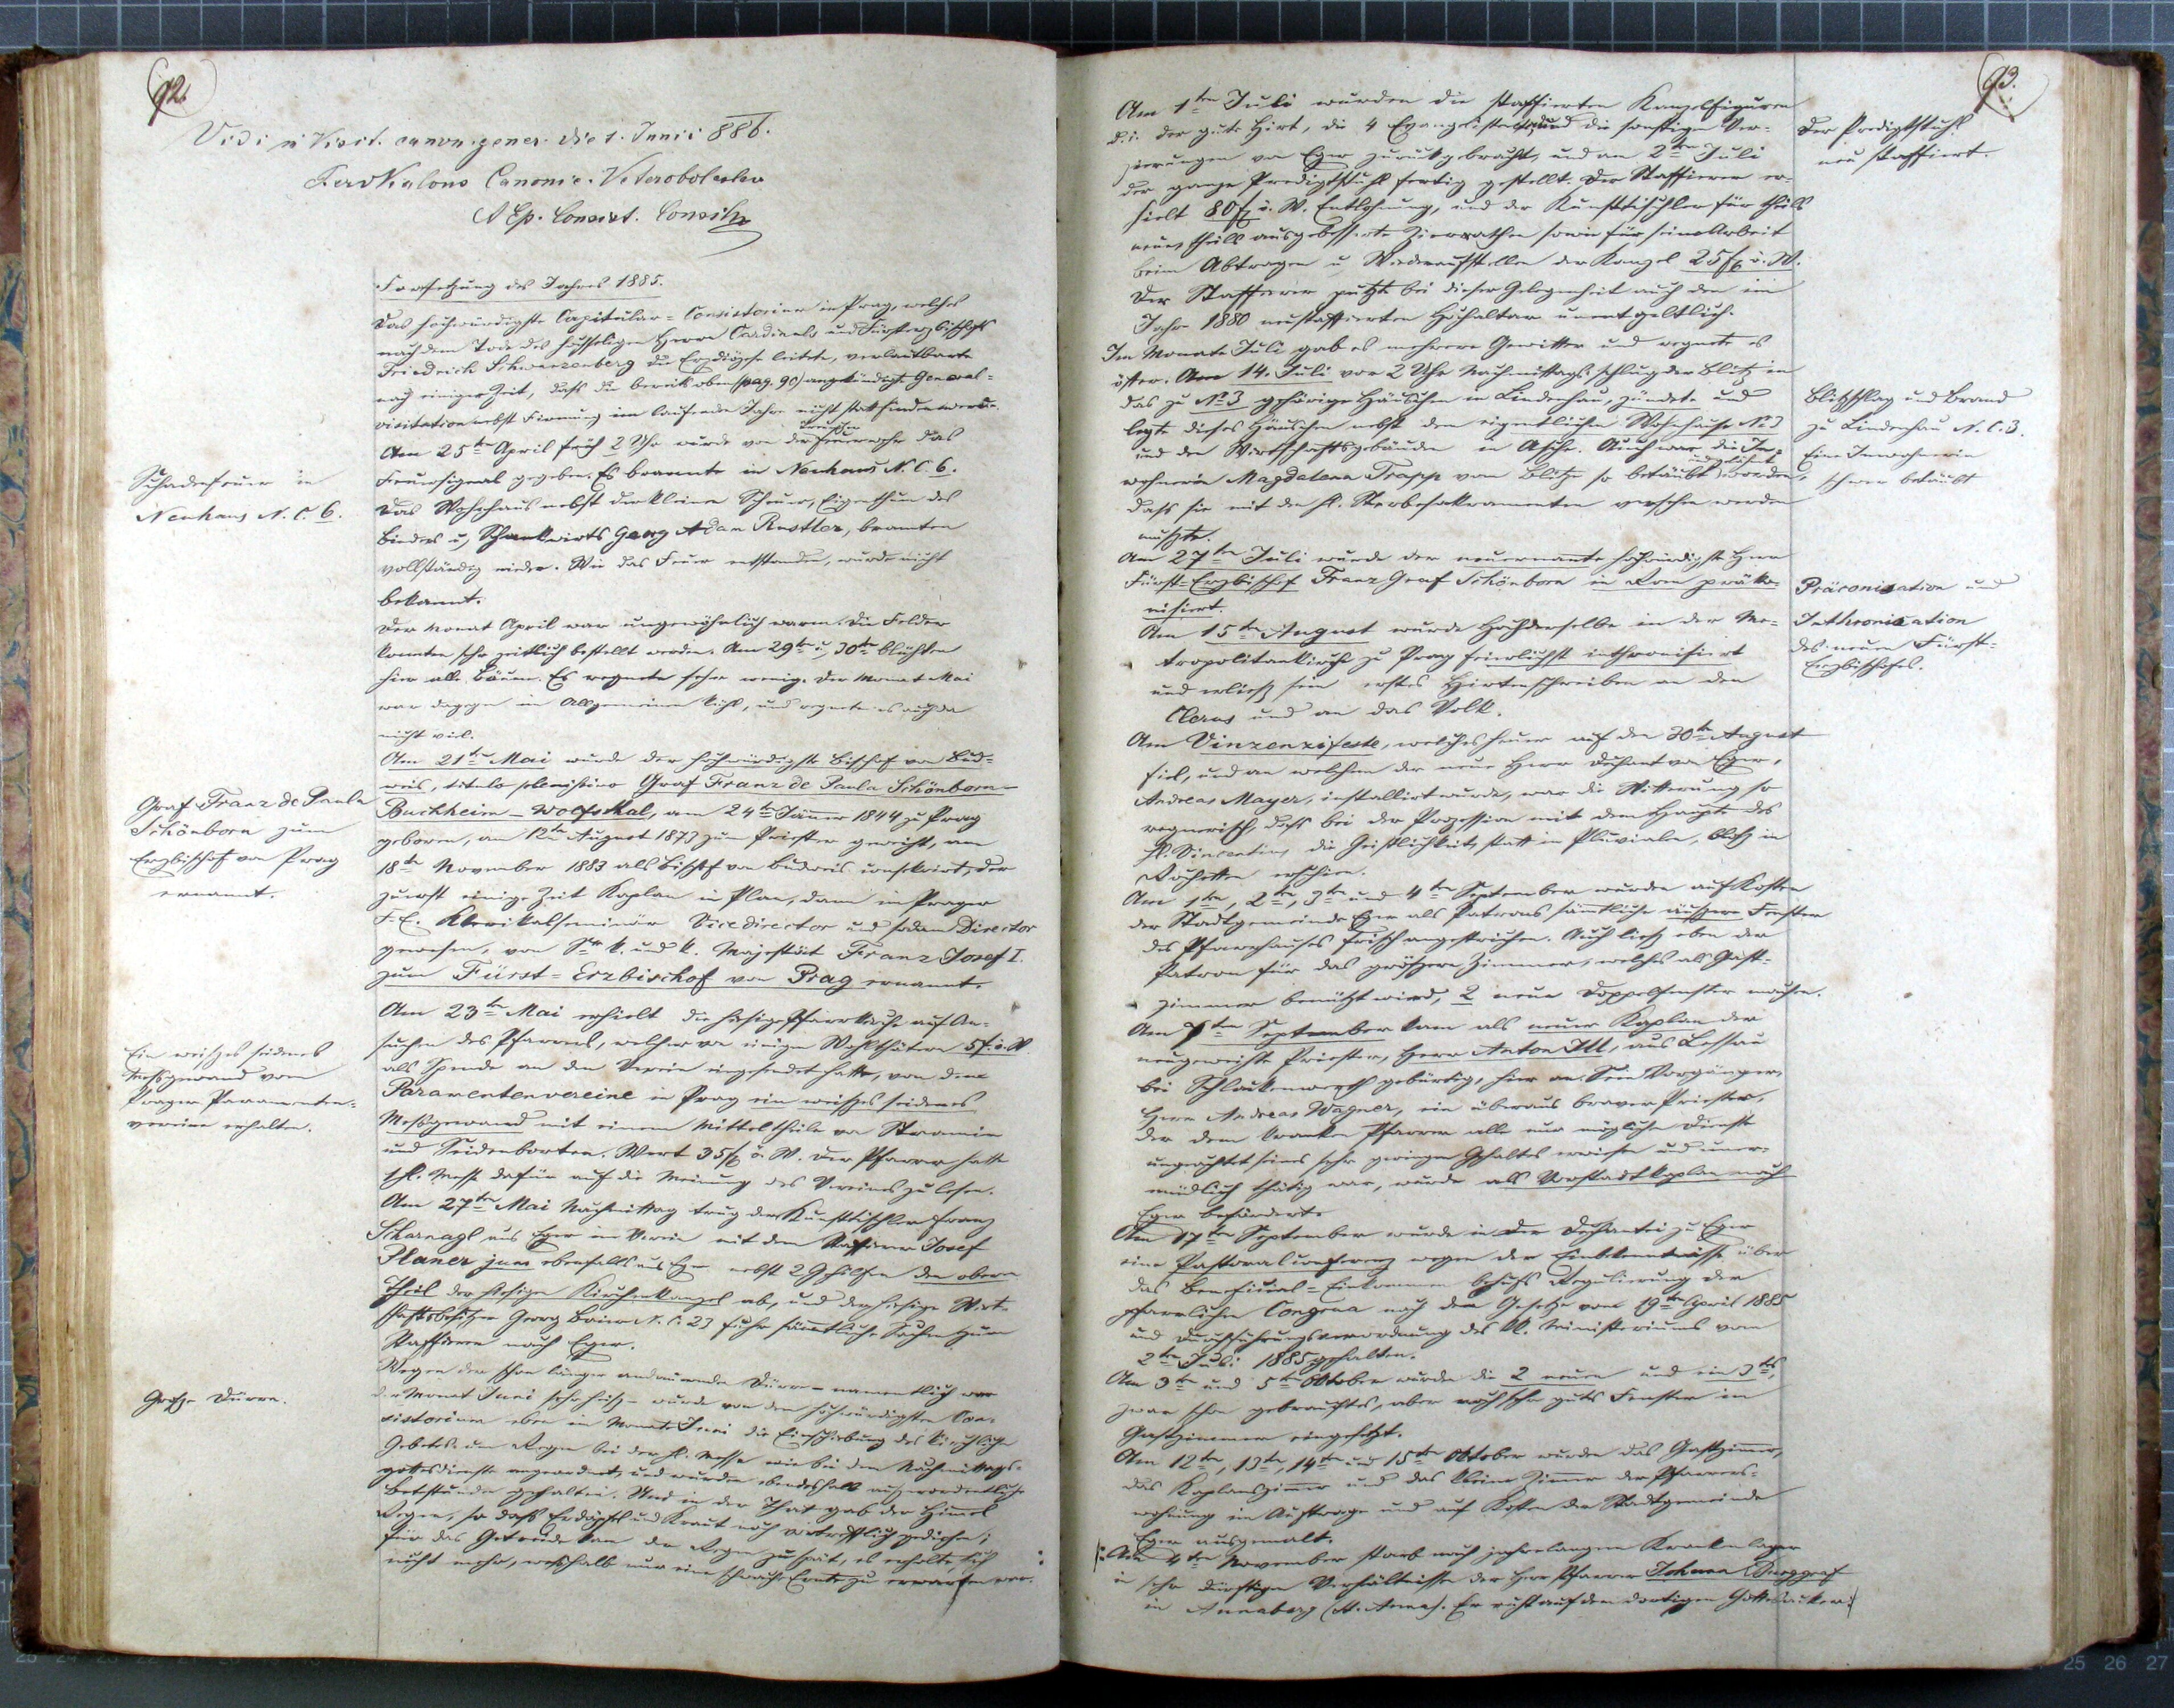 92.
Vidi in Visit. canon. gener. die 1. Junii 886.
Canonic. Veteroboleslav
A Ep. Consist. Consil
Fortsetzung des Jahres 1885.
Das hochwürdigste Capitular-Consistorium in Prag, welches
nach dem Tode des hochseligen Herrn Cardinals und Fürsterzbischofs
Friedrich Schwarzenberg die Erzdiözese leitete, verlautbarte
nach einiger Zeit, daß die bereits oben (pag. 90) angekündigte General-
visitation nebst Firmung im laufenden Jahre nicht stattfinden werde.
Am 25ten April früh 2 Uhr wurde von der Feuerwehr das
Schadenfeuer in
Neuhaus N. C. 6.
Feuersignal gegeben. Es brannte in Neuhaus N. C. 6.
Das Wohnhaus nebst der kleinen Scheuer, Eigenthum des
Binders u. Schankwirts Georg Adam Rustler, brannten
vollständig nieder. Wie das Feuer entstanden, wurde nicht
bekannt.
Der Monat April war ungewöhnlich warm. Die Felder
konnten sehr zeitlich bestellt werden. Am 29ten u. 30ten blühten
hier alle Bäume. Es regnete sehr wenig. Der Monat Mai
war dagegen im Allgemeinen kühl, und regnete es auch da
nicht viel.
Am 21ten Mai wurde der hochwürdigste Bischof von Bud-
weis, titulo plenissimo Graf Franz de Paula Schönborn-
Graf Franz de Paula
Schönborn zum
Erzbischof von Prag
ernannt.
Buchheim-Wolfsthal, am 24ten Jänner 1844 zu Prag
geboren, am 12ten August 1873 zum Priester geweiht, am
18ten November 1883 als Bischof von Budweis consekrirt, der
zuerst einige Zeit Kaplan in Plan, dann im Prager
F. E. Klerikalseminär Vicedirector und sodann Director
gewesen, von Sr. k. und k. Majestät Franz Josef I.
zum Fürst-Erzbischof von Prag ernannt.
Am 23ten Mai erhielt die hiesige Pfarrkirche auf An-
Ein weißes seidenes
Messgewand vom
Prager Paramenten-
vereine erhalten.
suchen des Pfarrers, welcher von einigen Wohlthätern 5 f. ö. W.
als Spende an den Verein eingesendet hatte, von dem
Paramentenvereine in Prag ein weißes seidenes
Messgewand mit einem Mitteltheile von Stramin
und Seidenborten. Wert 35 f ö. W. Der Pfarrer hatte
1 hl. Messe dafür auf die Meinung des Vereines zu lesen.
Am 27ten Mai Nachmittag trug der Kunsttischler Franz
Scharnagl aus Eger im Verein mit dem Staffirer Josef
Planer jun. ebenfalls aus Eger nebst 2 Gehilfen den obern
Theil der hiesigen Kirchenkanzel ab, und der hiesige Wirt-
schaftsbesitzer Georg Baier N. C. 23 fuhr sämtliche Sachen zum
Staffierer nach Eger.
Große Dürre.
Wegen der schon länger andauernden Dürre - namentlich war
der Monat Juni sehr heiß - wurde von dem hochwürdigsten Con-
sistorium eben im Monate Juni die Einschiebung des kirchlichen
Gebetes um Regen bei der hl. Messe wie bei dem Nachmittags-
gottesdienste angeordnet, und wurden ebendeshalb außerordentliche
Betstunden gehalten. Und in der That gab der Himmel
Regen, so daß Erdäpfel und Kraut noch vortrefflich gediehen;
für das Getreide kam der Regen zu spät, es erholte sich
nicht mehr, weßhalb nur eine schwache Ernte zu erwarten war.
93.
Am 1ten Juli wurden die staffierten Kanzelfiguren
d. i. der gute Hirt, die 4 Evangelisten und die sonstigen Ver-
Der Predigtstuhl
neu staffiert.
zierungen von Eger zurückgebracht, und am 2ten Juli
der ganze Predigtstuhl fertig gestellt. Der Staffierer er-
hielt 80 f ö. W. Entlohnung, und der Kunsttischler für theils
neue, theils ausgebesserte Zierrathen sowie für seine Arbeit
beim Abtragen u. Wiederaufstellen der Kanzel 25 f ö. W.
Der Staffierer putzte bei dieser Gelegenheit auch den im
Jahre 1880 neustaffierten Hochaltar unentgeltlich.
Im Monate Juli gab es mehrere Gewitter und regnete es
öfter. Am 14. Juli vor 2 Uhr Nachmittags schlug der Blitz in
Blitzschlag und Brand
zu Lindenhau N. C. 3.
Eine Inwohnerin
schwer betäubt
das zu No 3 gehörige Häuschen in Lindenhau, zündete und
legte dieses Häuschen nebst dem eigentlichen Wohnhause No 3
und den Wirtschaftsgebäuden in Asche. Auch war die In-
wohnerin Magdalena Trapp vom Blitze so betäubt worden,
daß sie mit den hl. Sterbesakramenten versehen werden
mußte.
Am 27ten Juli wurde der neuernannte hochwürdigste Herr
Fürst-Erzbischof Franz Graf Schönborn in Rom präko-
nisiert.
Präconisation und
Inthronisation
des neuen Fürst-
Erzbischofes.
Am 15ten August wurde Hochderselbe in der Me-
tropolitankirche zu Prag feierlichst inthronisiert
und erließ sein erstes Hirtenschreiben an den
Clerus und an das Volk.
Am Vinzenzifeste, welches heuer auf den 30ten August
fiel, und an welchem der neue Herr Dechant von Eger,
Andreas Mayer, installirt wurde, war die Witterung so
regnerisch, daß bei der Prozession mit dem Haupte des
hl. Vincentius die Geistlichkeit, statt in Pluviale, bloß in
Rochetten erschien.
Am 1ten, 2ten, 3ten und 4ten September wurden auf Kosten
der Stadtgemeinde Eger als Patrons sämtliche äußere Fenster
des Pfarrhauses frisch angestrichen. Auch ließ eben der
Patron für das größere Zimmer, welches als Gast-
zimmer benützt wird, 2 neue Doppelfenster machen.
Am 7ten September kam als neuer Kaplan der
neugeweihte Priester, Herr Anton Ill, aus Lessau
bei Schlackenwerth gebürtig, hier an. Sein Vorgänger,
Herr Andreas Wagner, ein überaus braver Priester,
der dem kranken Pfarrer alle nur mögliche Dienste
ungeachtet seines sehr geringen Gehaltes erwiesen und uner-
müdlich thätig war, wurde als Vorstadtkaplan nach
Eger befördert.
Am 17ten September wurde in der Dechantei zu Eger
eine Pastoralconferenz wegen der Einbekenntnisse über
das Beneficial-Einkommen behufs Regulierung der
pfarrlichen Congrua nach dem Gesetze vom 19ten April 1885
und Durchführungsverordnung des kk. Ministeriums vom
2ten Juli 1885 gehalten.
Am 3ten und 5ten Oktober wurden die 2 neuen und ein 3tes,
zwar schon gebrauchtes, aber noch sehr gutes Fenster im
Gastzimmer eingesetzt.
Am 12ten, 13ten, 14ten und 15ten Oktober wurden das Gastzimmer,
das Kaplanszimmer und das kleine Zimmer der Pfarrers-
wohnung im Auftrage und auf Kosten der Stadtgemeinde
Eger ausgemalt.
Am 4ten November starb nach jahrelangem Krankenlager
in sehr dürftigen Verhältnissen der Herr Pfarrer Johann Burggraf
in Annaberg (St. Anna). Er ruht auf dem dortigen Gottesacker.